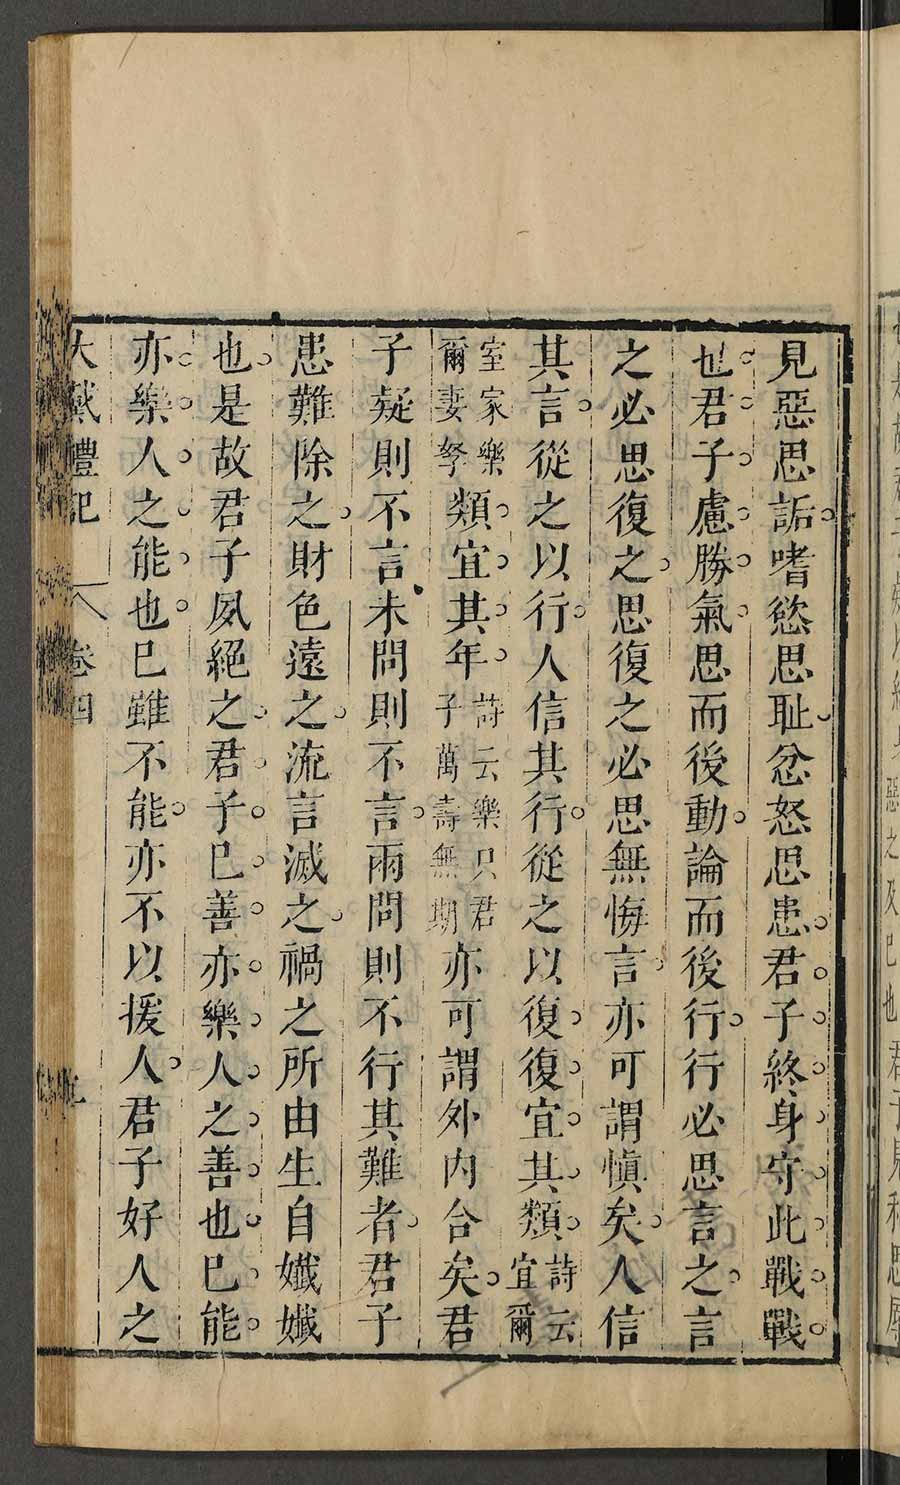 見惡思詬嗜慾思耻忿怒思患君子終身守此戰戰
也君子慮勝氣思而後動論而後行行必思言之言
之必思復之思復之必思無悔言亦可謂愼矣人信
其言從之以行人信其行從之以復復宜其類詩云宜爾
室家樂爾妻孥類宜其年詩云樂只君子萬壽無期亦可謂外內合矣君
子疑則不言未問則不言兩問則不行其難者君子
患難除之財色遠之流言滅之禍之所由生自孅孅
也是故君子夙絕之君子巳善亦樂人之善也巳能
亦樂人之能也巳雖不能亦不以援人君子好人之
大戴禮記 卷四